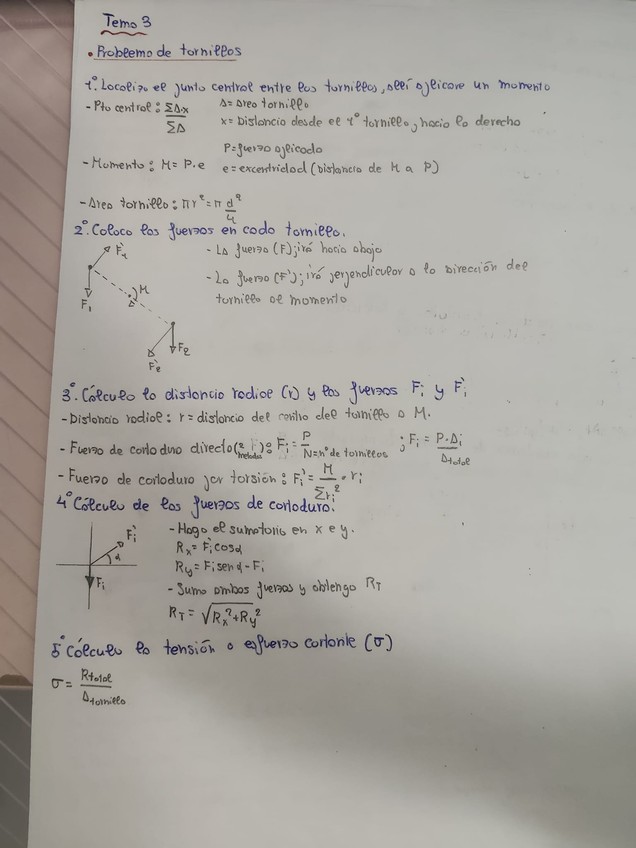 Tema 3
• Problema de tornillos
1º. Localizo el punto central entre los tornillos, allí aplicare un momento
- Pto central: ΣA·x / ΣA
A = Area tornillo
x = Distancia desde el 1º tornillo, hacia la derecha
P = fuerza aplicada
- Momento: M = P·e
e = excentricidad (Distancia de M a P)
- Area tornillo: πr² = π d²/4
2º. Coloco las fuerzas en cada tornillo.
- La fuerza (F); irá hacia abajo
- La fuerza (F'); irá perpendicular a la dirección del
tornillo al momento
F'₁
F₁
M
F₂
F'₂
3º. Cálculo la distancia radial (r) y las fuerzas Fᵢ y F'ᵢ
- Distancia radial: r = distancia del centro del tornillo a M.
- Fuerza de cortadura directa (2 métodos): Fᵢ = P/N N = nº de tornillos ; Fᵢ = P·Aᵢ / A total
- Fuerza de cortadura por torsión: F'ᵢ = M / Σrᵢ² · rᵢ
4º Cálculo de las fuerzas de cortadura.
F'ᵢ
α
Fᵢ
- Hago el sumatorio en x e y.
Rx = F'ᵢ cosα
Ry = F'ᵢ senα - Fᵢ
- Sumo ambas fuerzas y obtengo R_T
R_T = √Rx² + Ry²
5º Cálculo la tensión o esfuerzo cortante (σ)
σ = R total / A tornillo